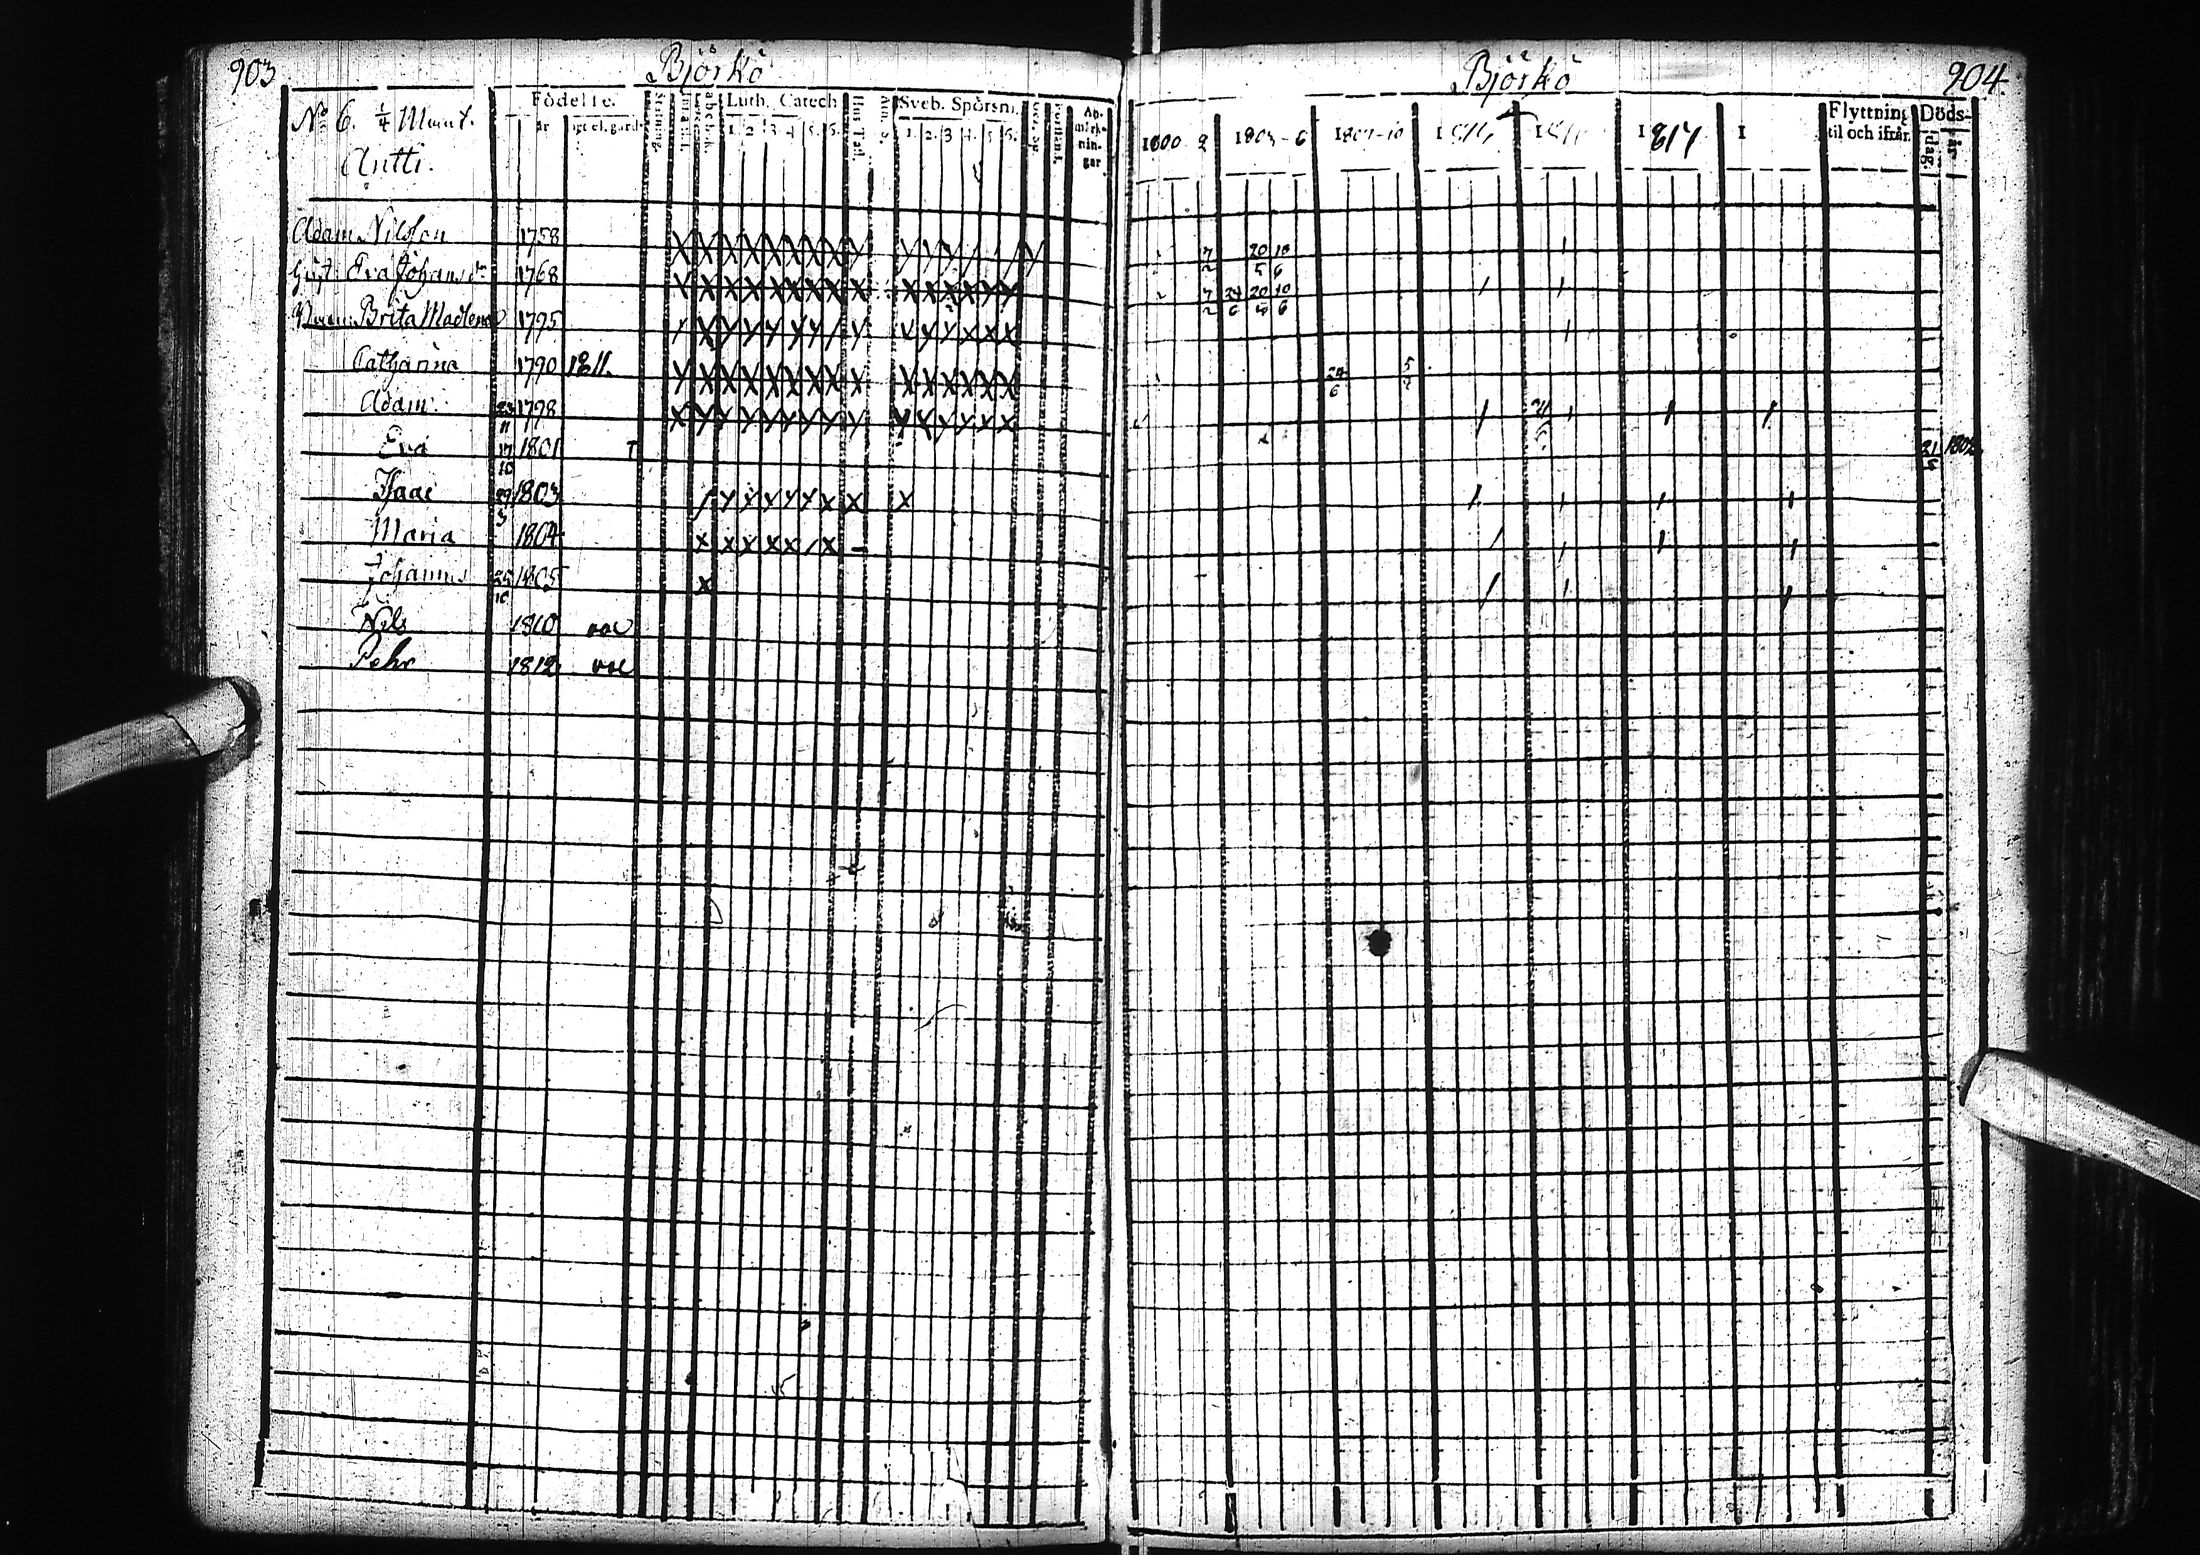 903
Björkö
No 6. 1/4 Mant.
Antti.
Födelse-
år
Luth. Catech
1. 2 3 4 5. 6.
Hus Tafl.
Sveb. Spörsm.
1. 2. 3 4. 5 6.
An-
märk-
nin-
gar
Adam Nilsson 1758
Hust. Eva Johansdr 1768
Brita Madlena 1795
Catharina 1790 1811.
Adam 23/11 1798
Eva 17/10 1801 T
Isaac 29/3 1803
Maria 1804
Johannes 25/10 1805
Nils 1810 vac
Pehr 1812 vac
Björkö
904.
1800 2 1803-6 1807-10 1817 1
Flyttning
til och ifrån
Döds-
dag. år
7/2 20/5 10/6
7/2 24/6 20/5 10/6
24/6 5/2
21 1802